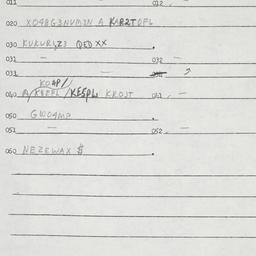 011 012. -
020 XO48G3NUM2N A KARTOFL
030 KUKURYZ3 QED XX .
031 - 032 -
033 - ?
KOAP/
040 KROJT 041. -
050 GWO4MP .
051 - 052. -
060 NEZEWAX $ .